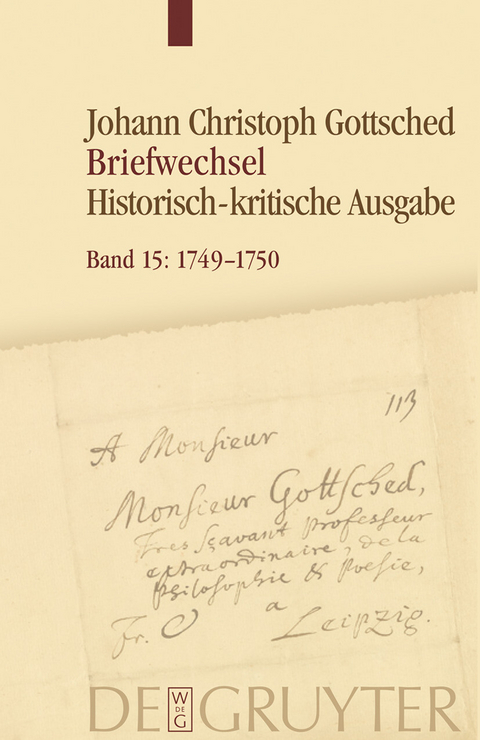 Johann Christoph Gottsched
Briefwechsel
Historisch-kritische Ausgabe
Band 15: 1749–1750
113
A Monsieur
Monsieur Gottsched,
Tres sçavant Professeur
extraordinaire, de la
Philosophie & Poesie,
a
Fr. Leipzig.
DE GRUYTER
W
DE
G